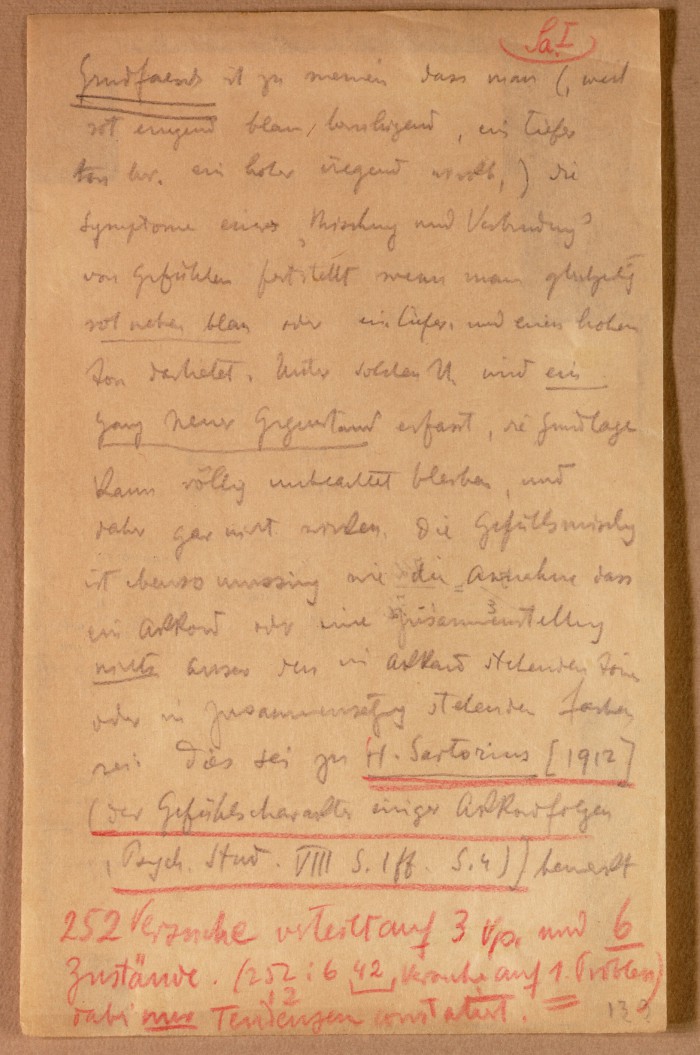 Sa. I
Grundfalsch ist zu meinen dass man (, weil
rot erregend blau, beruhigend, ein tiefer
ton ber. ein hoher erregend wirkt,) die
Symptome einer „Mischung und Verbindung"
von Gefühlen feststellt wenn man gleichzeitig
rot neben blau oder ein tiefer und einen hohen
Ton darbietet. Unter solchen U. wird ein
ganz neuer Gegenstand erfasst, die Grundlage
kann völlig unbeachtet bleiben, und
daher gar nicht wirken. Die Gefühlsmischg
ist ebenso unsinnig wie die Annahme dass
ein Akkord oder eine Zusammenstellung
nichts ausser den im Akkord stehenden Töne
oder in Zusammensetzg stehenden Farben
sei. Dies sei zu H. Sartorius [1912]
(der Gefühlscharakter einiger Akkordfolgen
, Psych. Stud. VIII S. 1ff. S. 4)] bemerkt
252 Versuche verteilt auf 3 Vp. und 6
Zustände. (252 : 6 42, Versuche auf 1. Problem)
12
dabei nur Tendenzen constatiert.
139